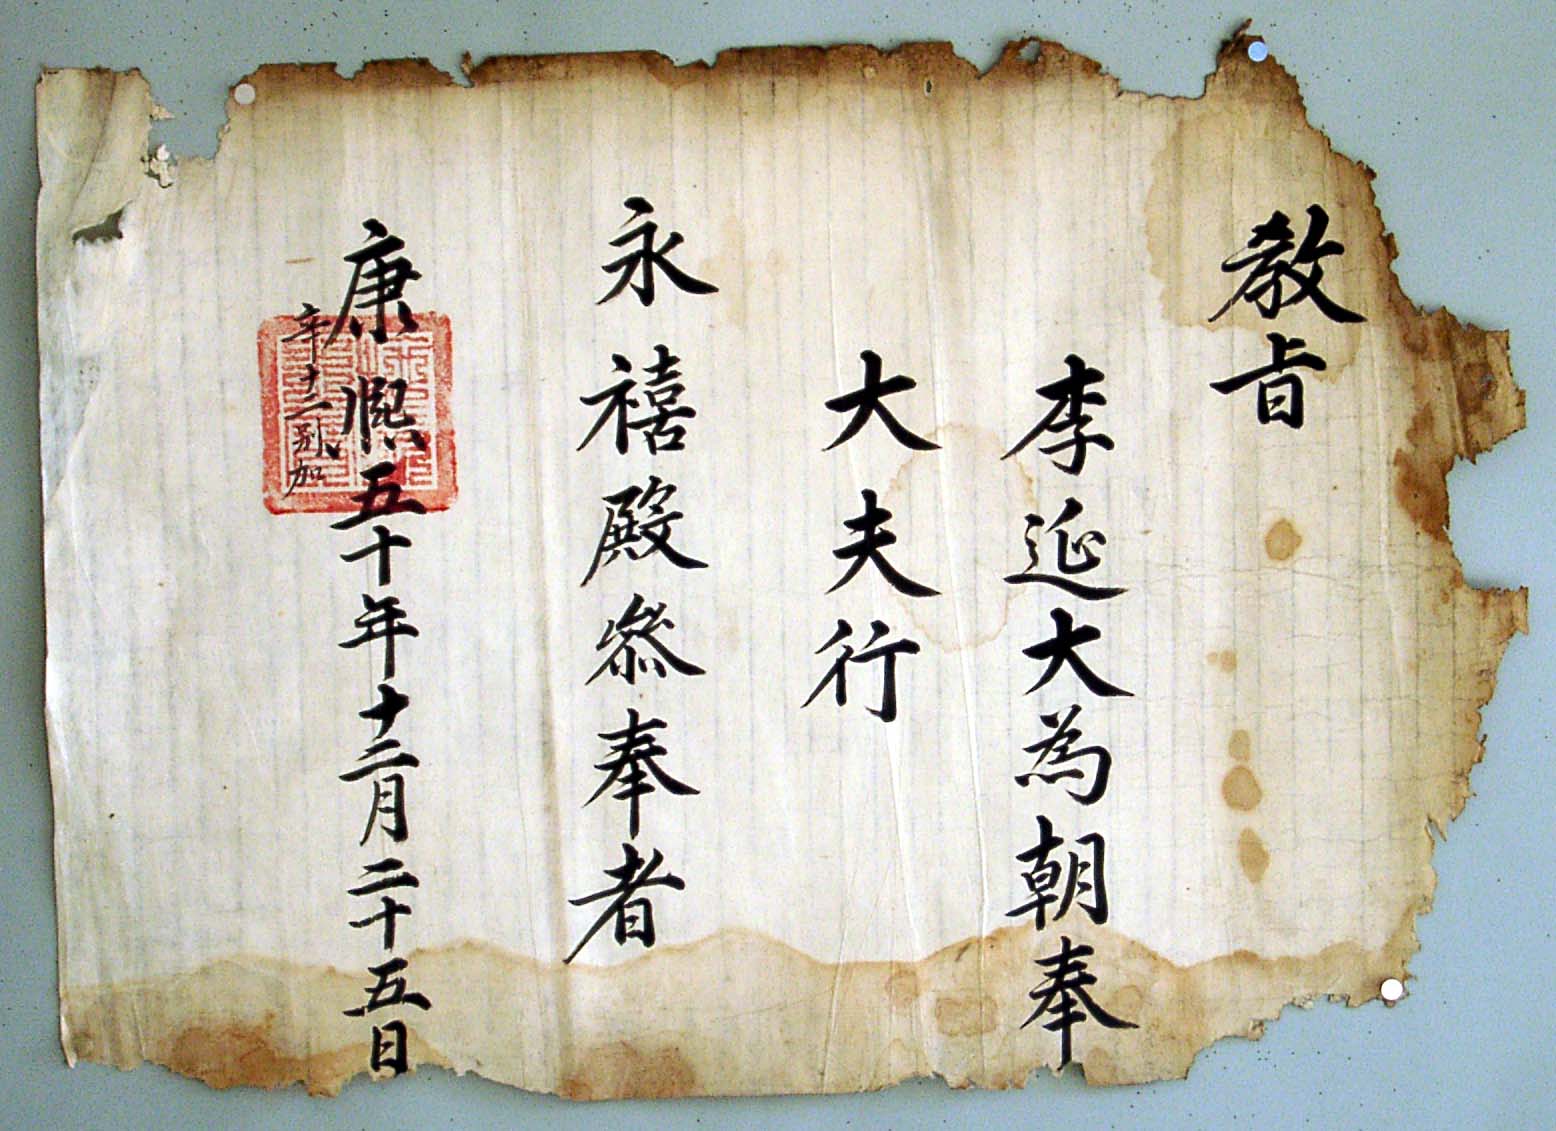 教旨
李延大為朝奉
大夫行
永禧殿叅奉者
康熙五十年十二月二十五日
辛十二別加